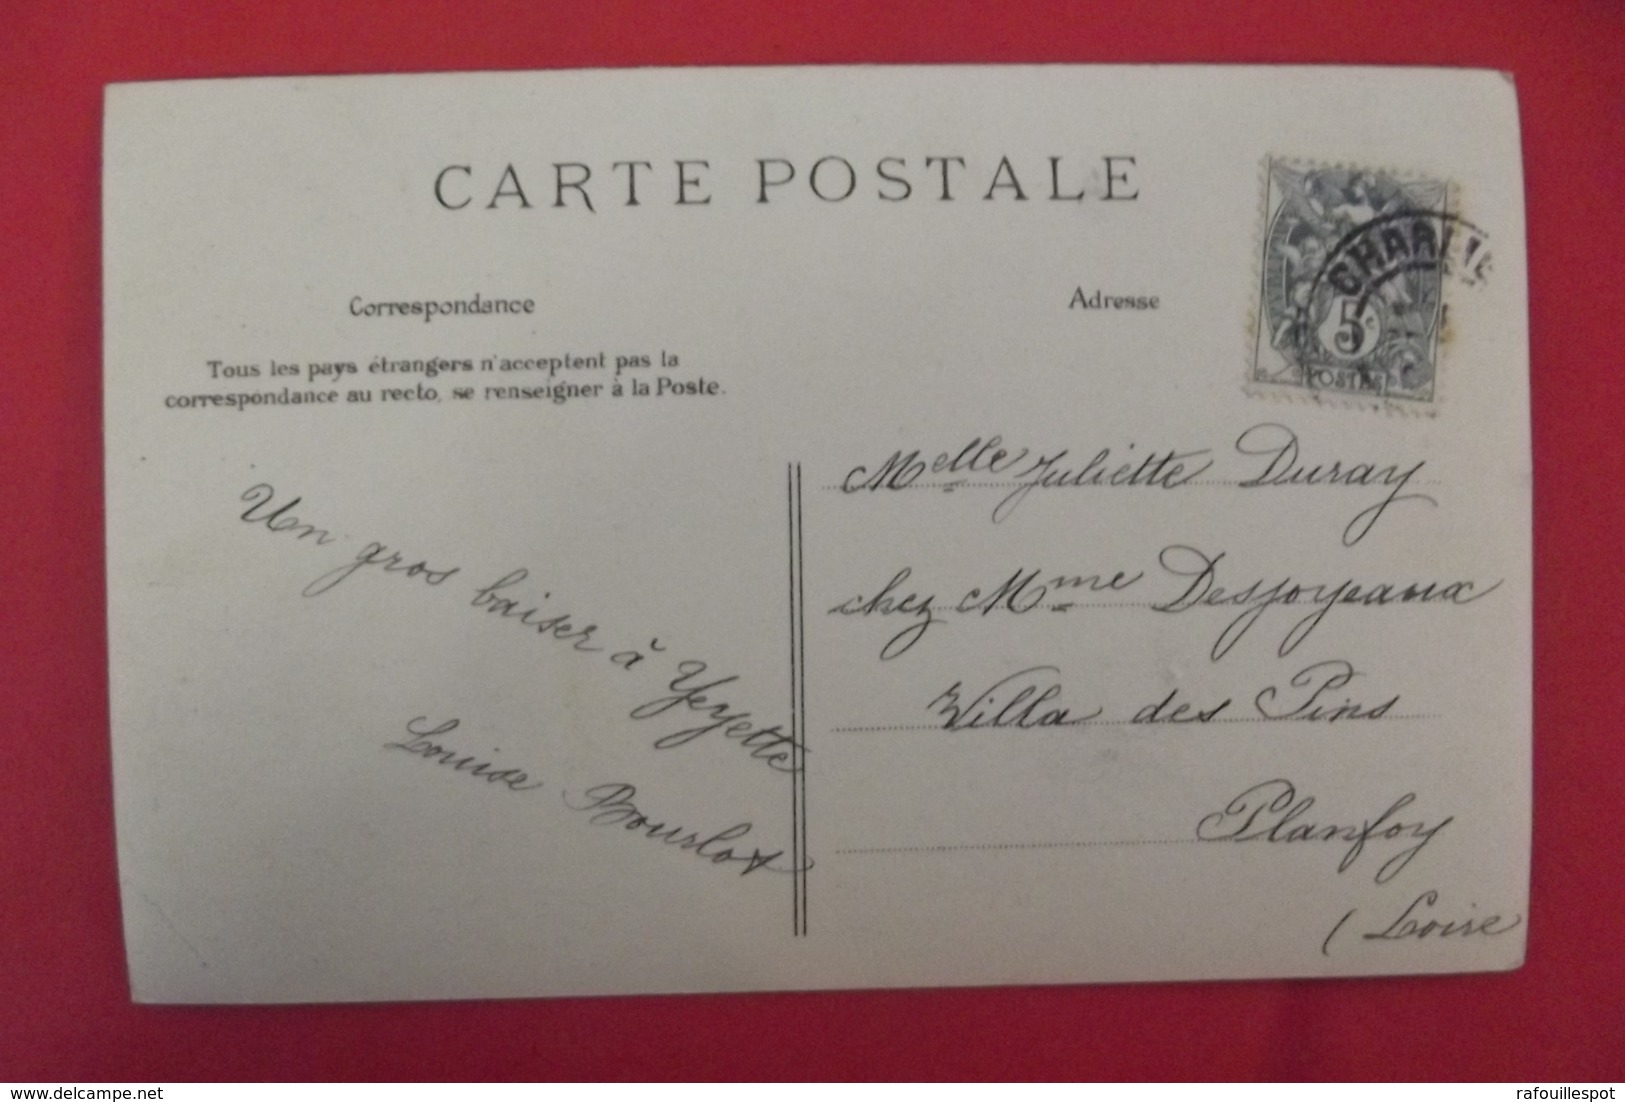 CARTE POSTALE
Correspondance
Adresse
Tous les pays étrangers n'acceptent pas la
correspondance au recto, se renseigner à la Poste.
CHARLIE
5c
POSTES
Un gros baiser à Yeyette
Louise Bourlot
Melle Juliette Duray
chez Mme Desjoyeaux
Villa des Pins
Planfoy
(Loire
delcampe.net
rafouillespot